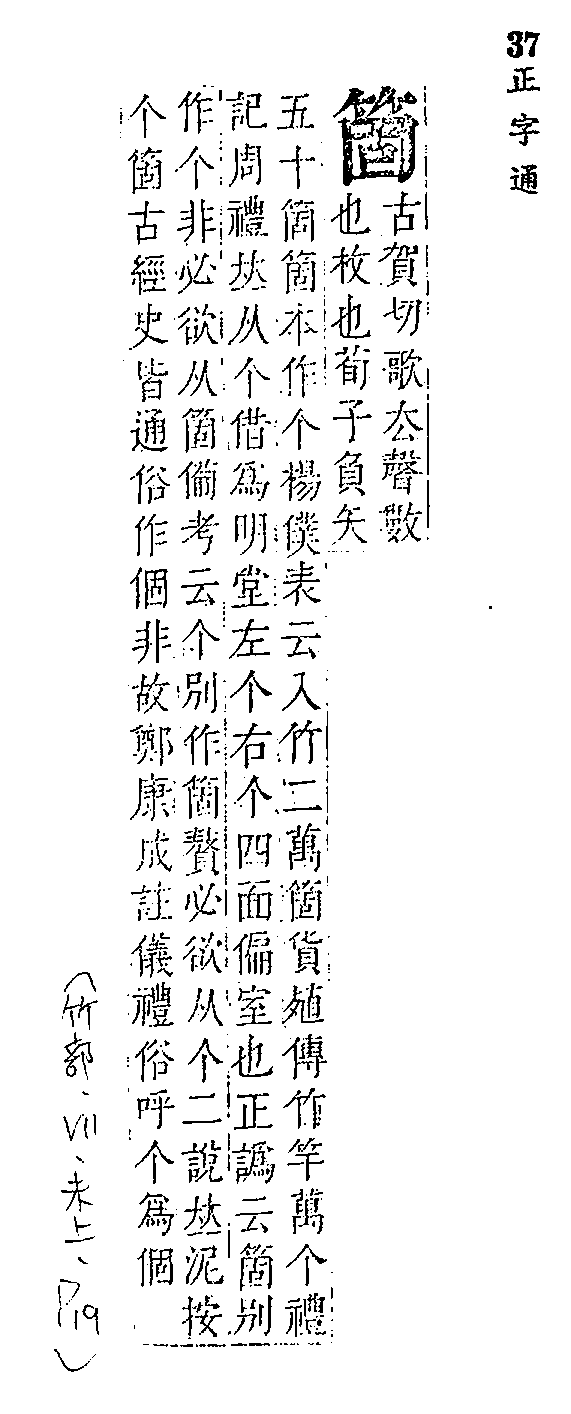 37正字通
箇
古賀切歌厺聲數
也枚也荀子負矢
五十箇箇本作个楊僕表云入竹二萬箇貨殖傳竹竿萬个禮
記周禮𠀤从个借爲明堂左个右个四面偏室也正譌云箇別
作个非必欲从箇備考云个別作箇贅必欲从个二說𠀤泥按
个箇古經史皆通俗作個非故鄭康成註儀禮俗呼个爲個
(竹部、VII、未上、P19)